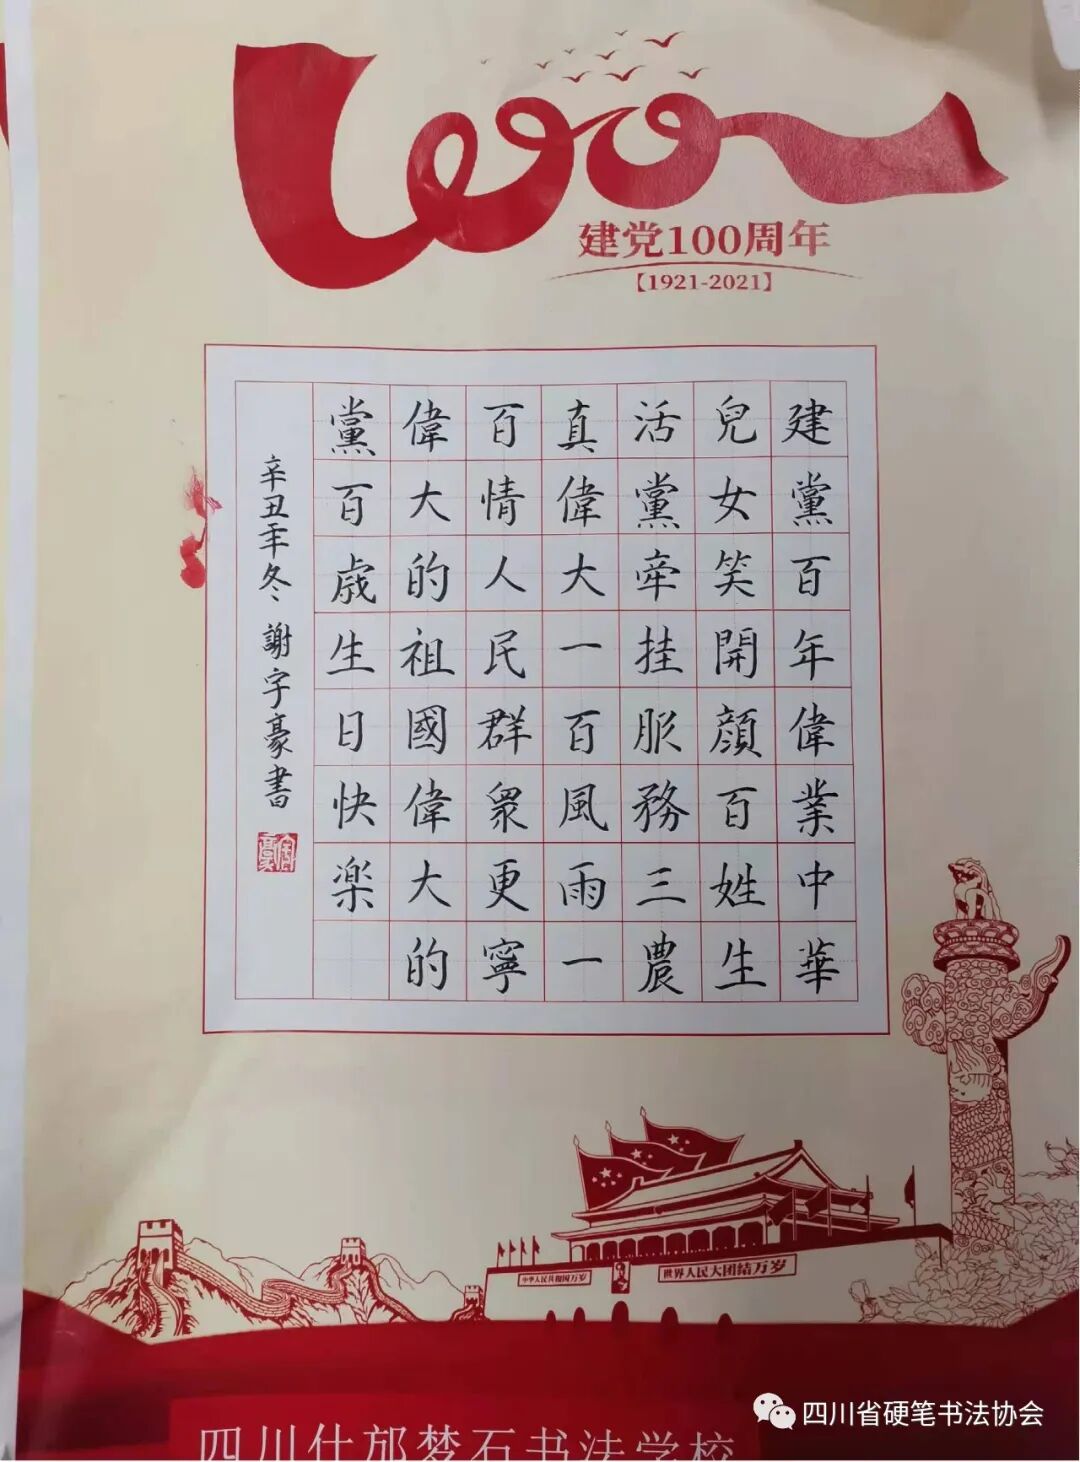 建党100周年
【1921-2021】
建黨百年偉業中華
兒女笑開顔百姓生
活黨牽挂服務三農
真偉大一百風雨一
百情人民群衆更寧
偉大的祖國偉大的
黨百歲生日快楽
辛丑年冬 謝字豪書
中华人民共和国万岁
世界人民大团结万岁
四川什邡梦石书法学校
四川省硬笔书法协会